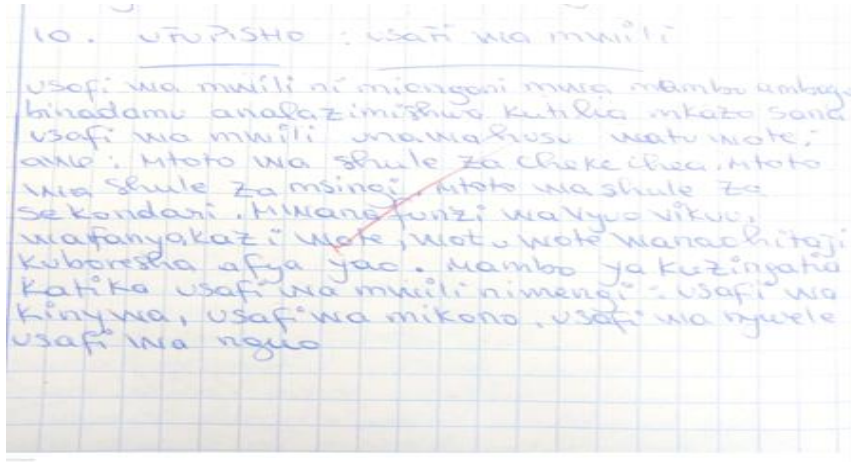 10. UFUPISHO : usafi wa mwili
usafi wa mwili ni miongoni mwa mambo ambayo
binadamu analazimishwa kutilia mkazo sana
usafi wa mwili unawahusu watu wote;
awe: Mtoto wa shule za chekechea. Mtoto
wa shule za msingi. Mtoto wa shule za
sekondari. Mwanafunzi wa vyuo vikuu,
wafanyakazi wote, watu wote wanaohitaji
kuboresha afya yao. Mambo ya kuzingatia
katika usafi wa mwili ni mengi: usafi wa
kinywa, usafi wa mikono, usafi wa nywele
usafi wa nguo